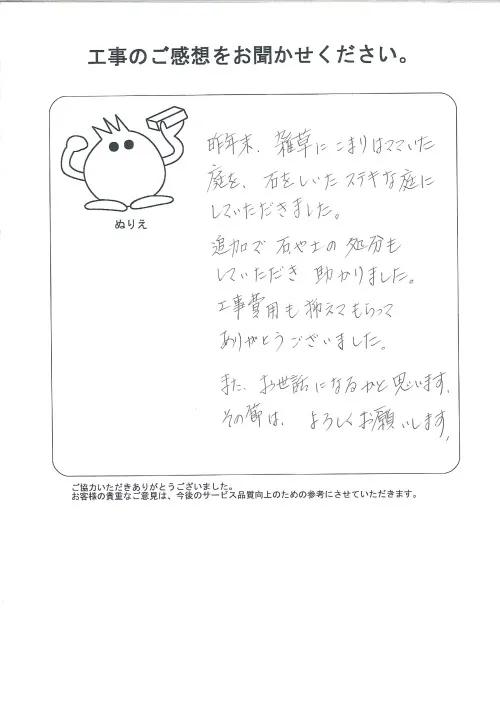 工事のご感想をお聞かせください。
ぬりえ
昨年末、雑草にこまりはてていた
庭を、石をしいたステキな庭に
していただきました。
追加で石や土の処分も
していただき助かりました。
工事費用も抑えてもらって
ありがとうございました。
また、お世話になるかと思います。
その節は、よろしくお願いします。
ご協力いただきありがとうございました。
お客様の貴重なご意見は、今後のサービス品質向上のための参考にさせていただきます。